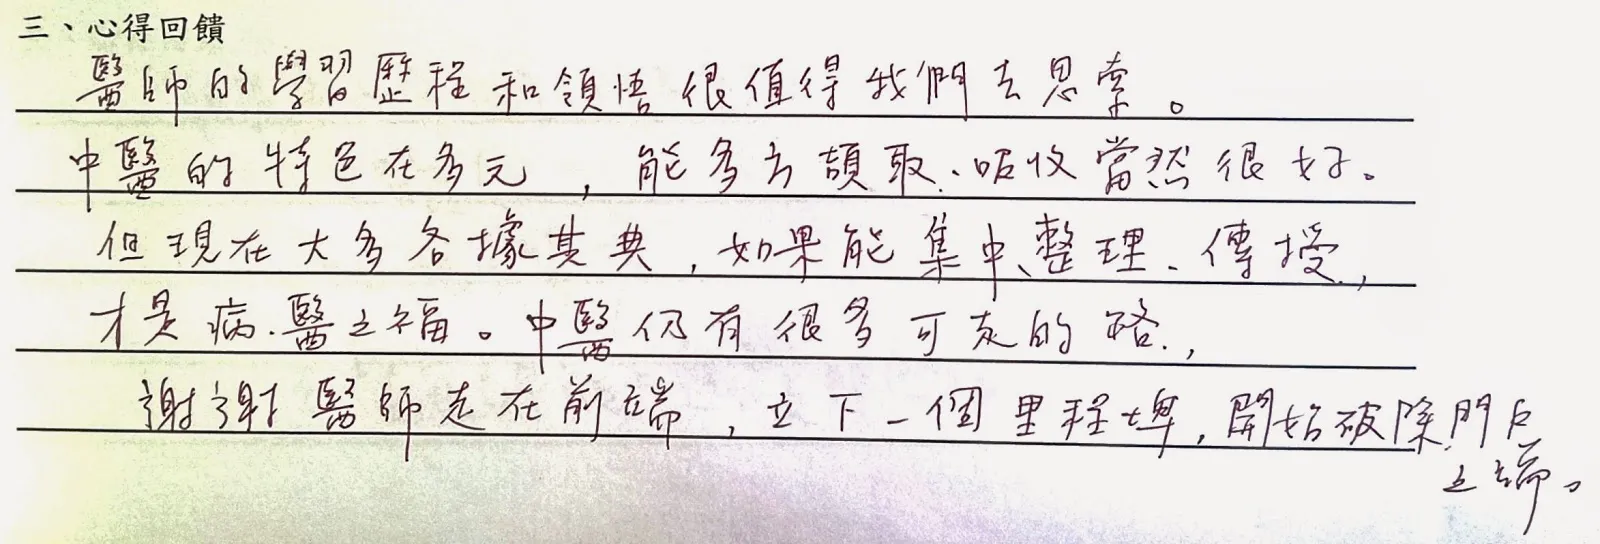 三、心得回饋
醫師的學習歷程和領悟很值得我們去思索。
中醫的特色在多元，能多方頡取、吸收當然很好。
但現在大多各據其典，如果能集中、整理、傳授，
才是病、醫之福。中醫仍有很多可走的路，
謝謝醫師走在前端，立下一個里程埤，開始破除門戶
之端。